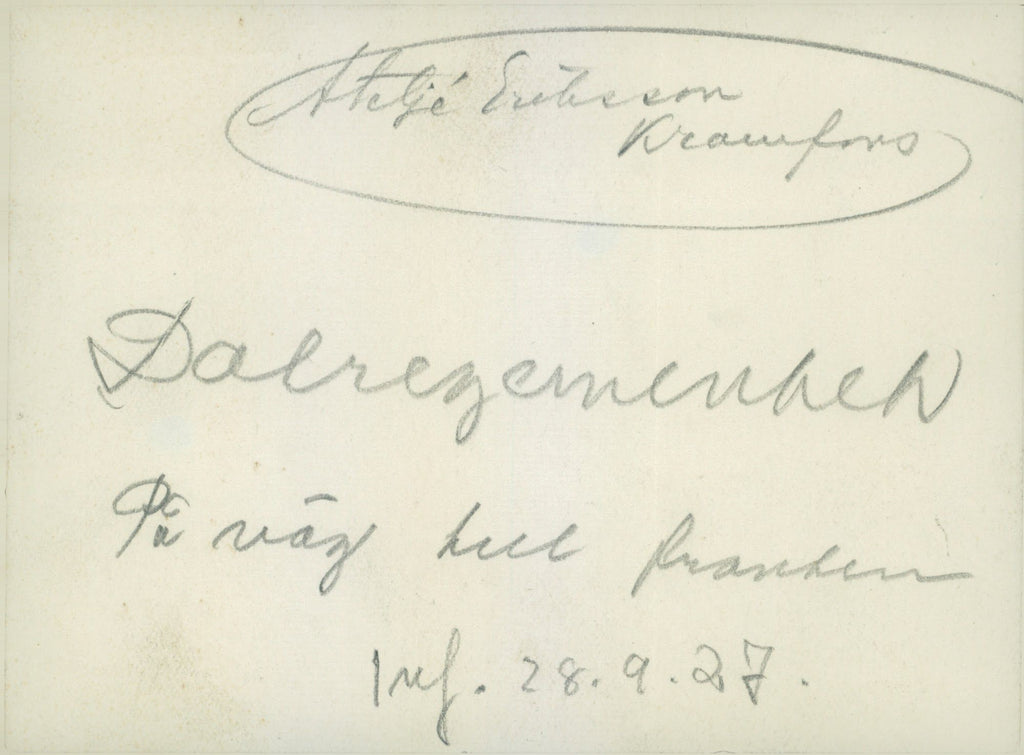 Ateljé Eriksson
Kramfors
Dalregementet
På väg till fronten
Inf. 28.9.27.